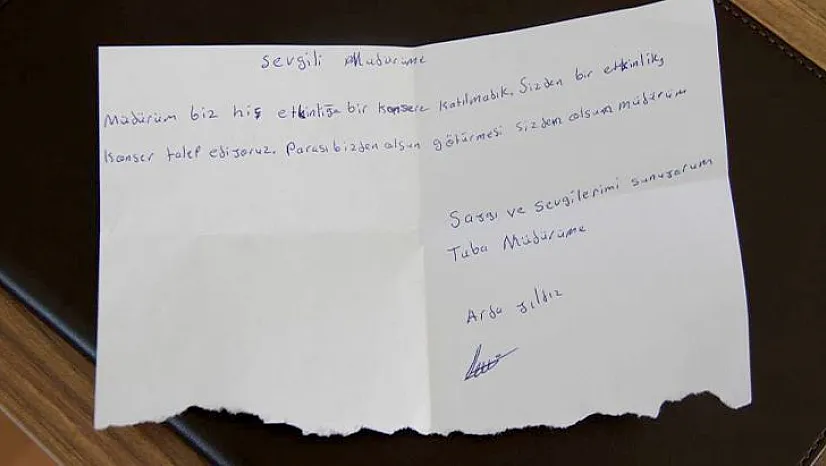 Sevgili Müdürüme
Müdürüm biz hiç etkinliğe bir konsere katılmadık. Sizden bir etkinlik,
konser talep ediyoruz. Parası bizden olsun götürmesi sizden olsun müdürüm
Saygı ve sevgilerimi sunuyorum
Tuba Müdürüme
Arda yıldız